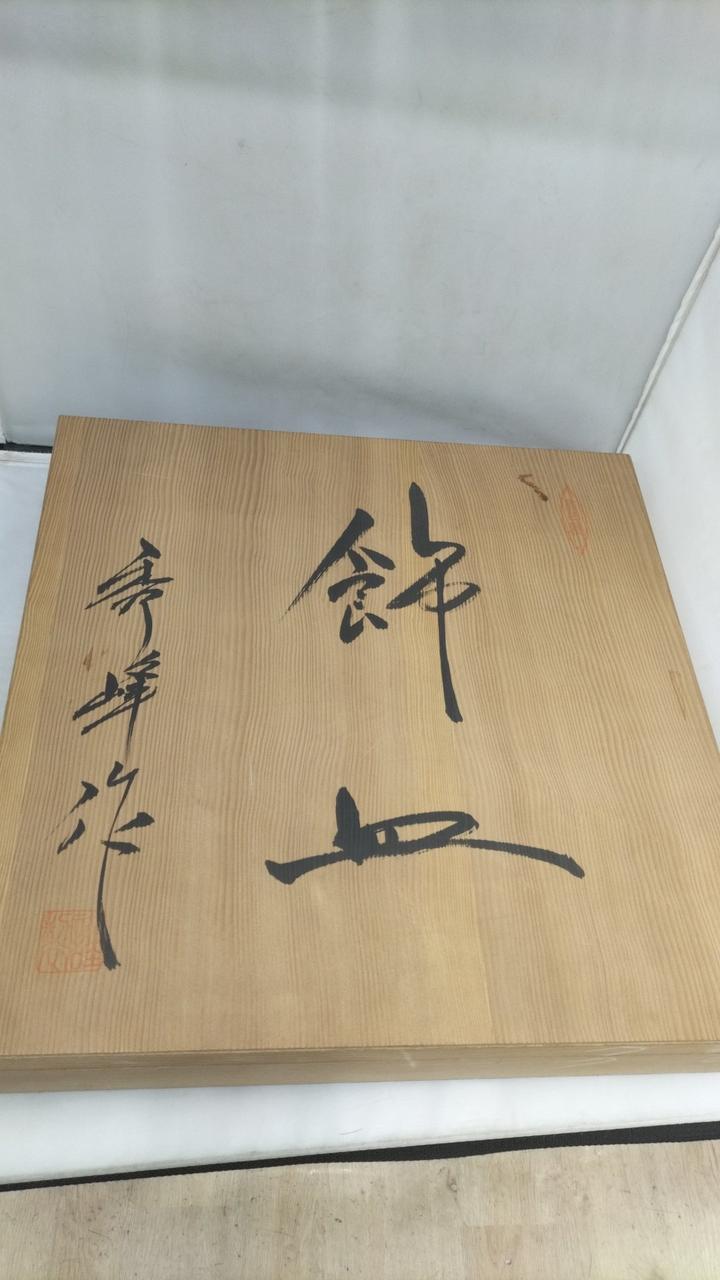 飾皿
秀峰作